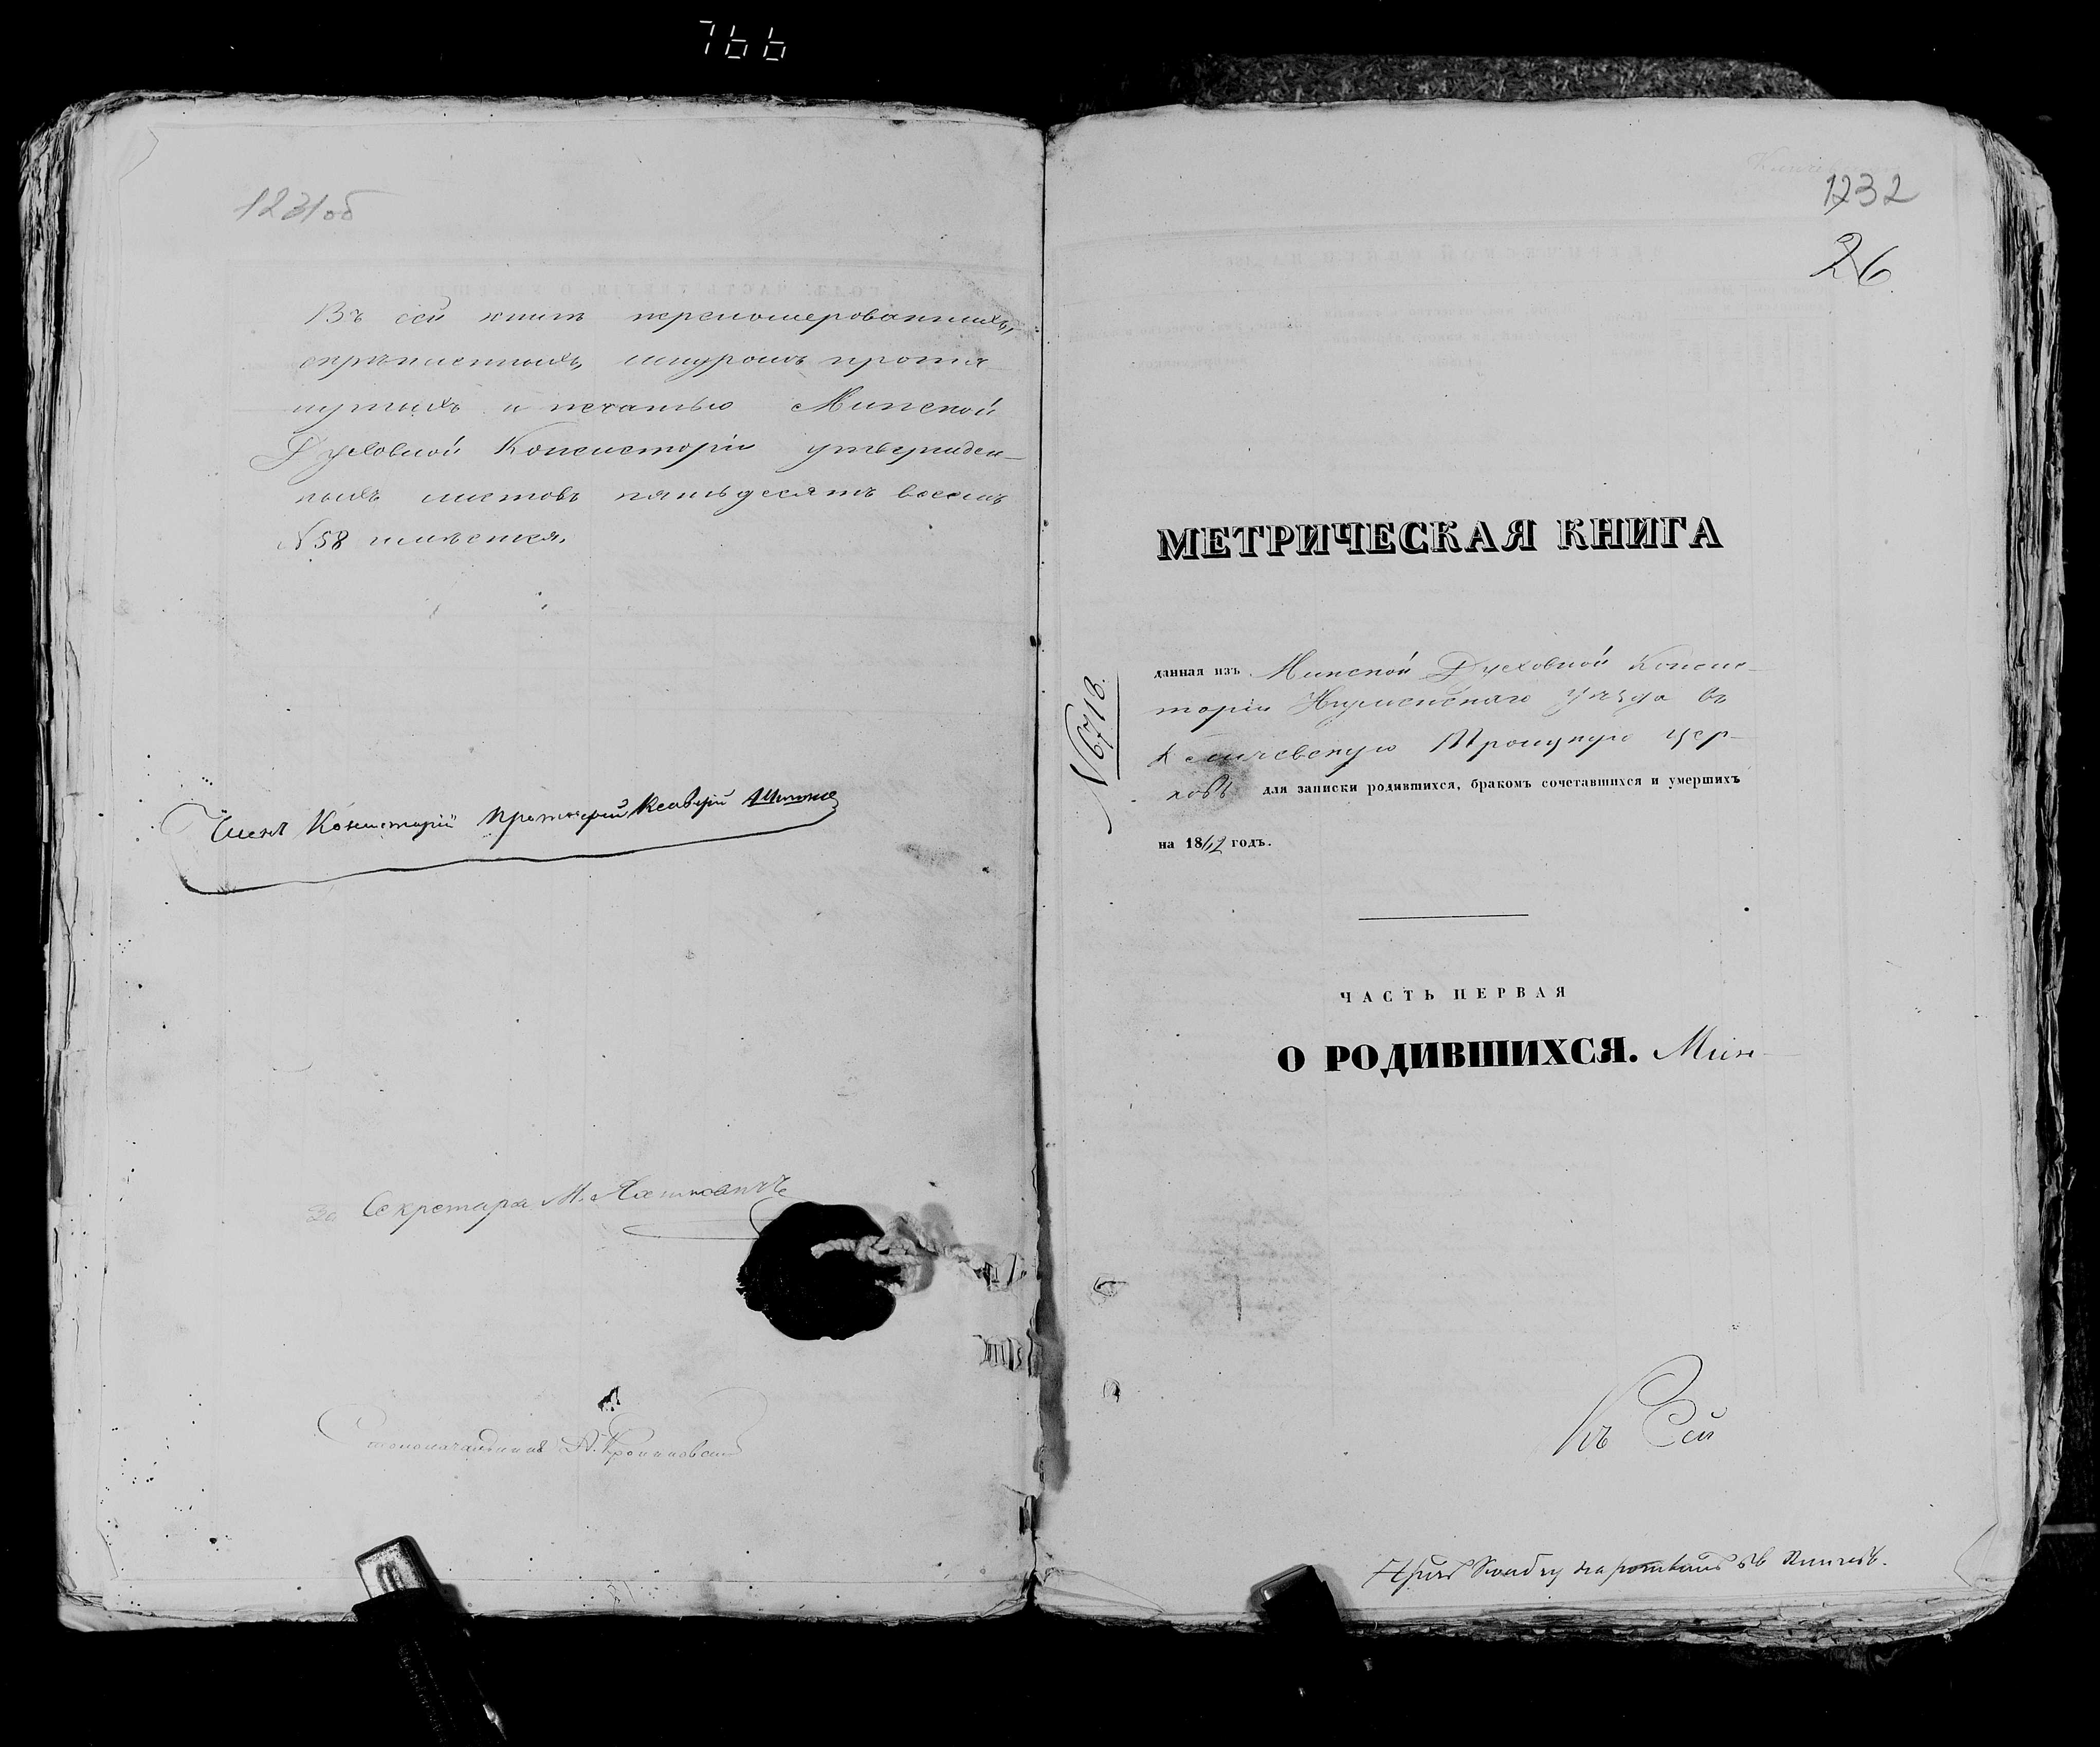 766
1231об
Въ сей книгѣ переномерованныхъ,
скрѣпленныхъ, шнуромъ протя-
нутыхъ и печатью Минской
Духовной Консисторіи утвержден-
ныхъ листовъ пятьдесятъ восемь
№ 58 имѣется.
Членъ Консисторіи Протоіерей
За Секретаря М.
Столоначальникъ А.
1232
26
МЕТРИЧЕСКАЯ КНИГА
№ 6718.
данная изъ Минской Духовной Консис-
торіи Игуменскаго уѣзда въ
Кличевскую Троицкую цер-
ковь для записки родившихся, бракомъ сочетавшихся и умершихъ
на 1862 годъ.
ЧАСТЬ ПЕРВАЯ
О РОДИВШИХСЯ. Мин-
Къ Сей